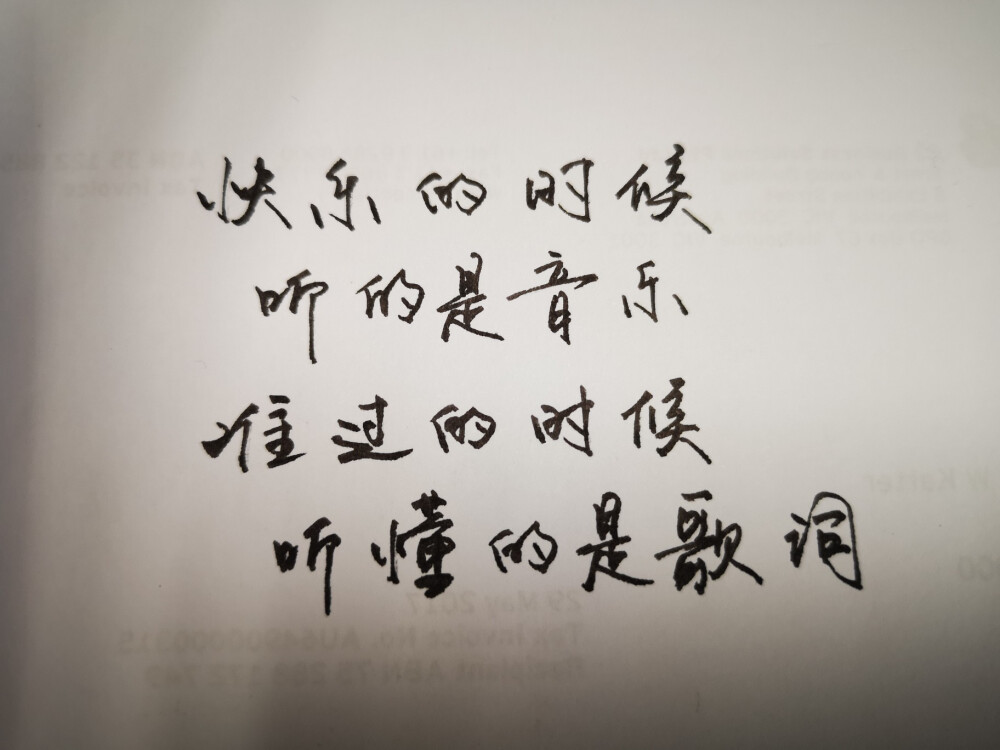 快乐的时候
听的是音乐
难过的时候
听懂的是歌词